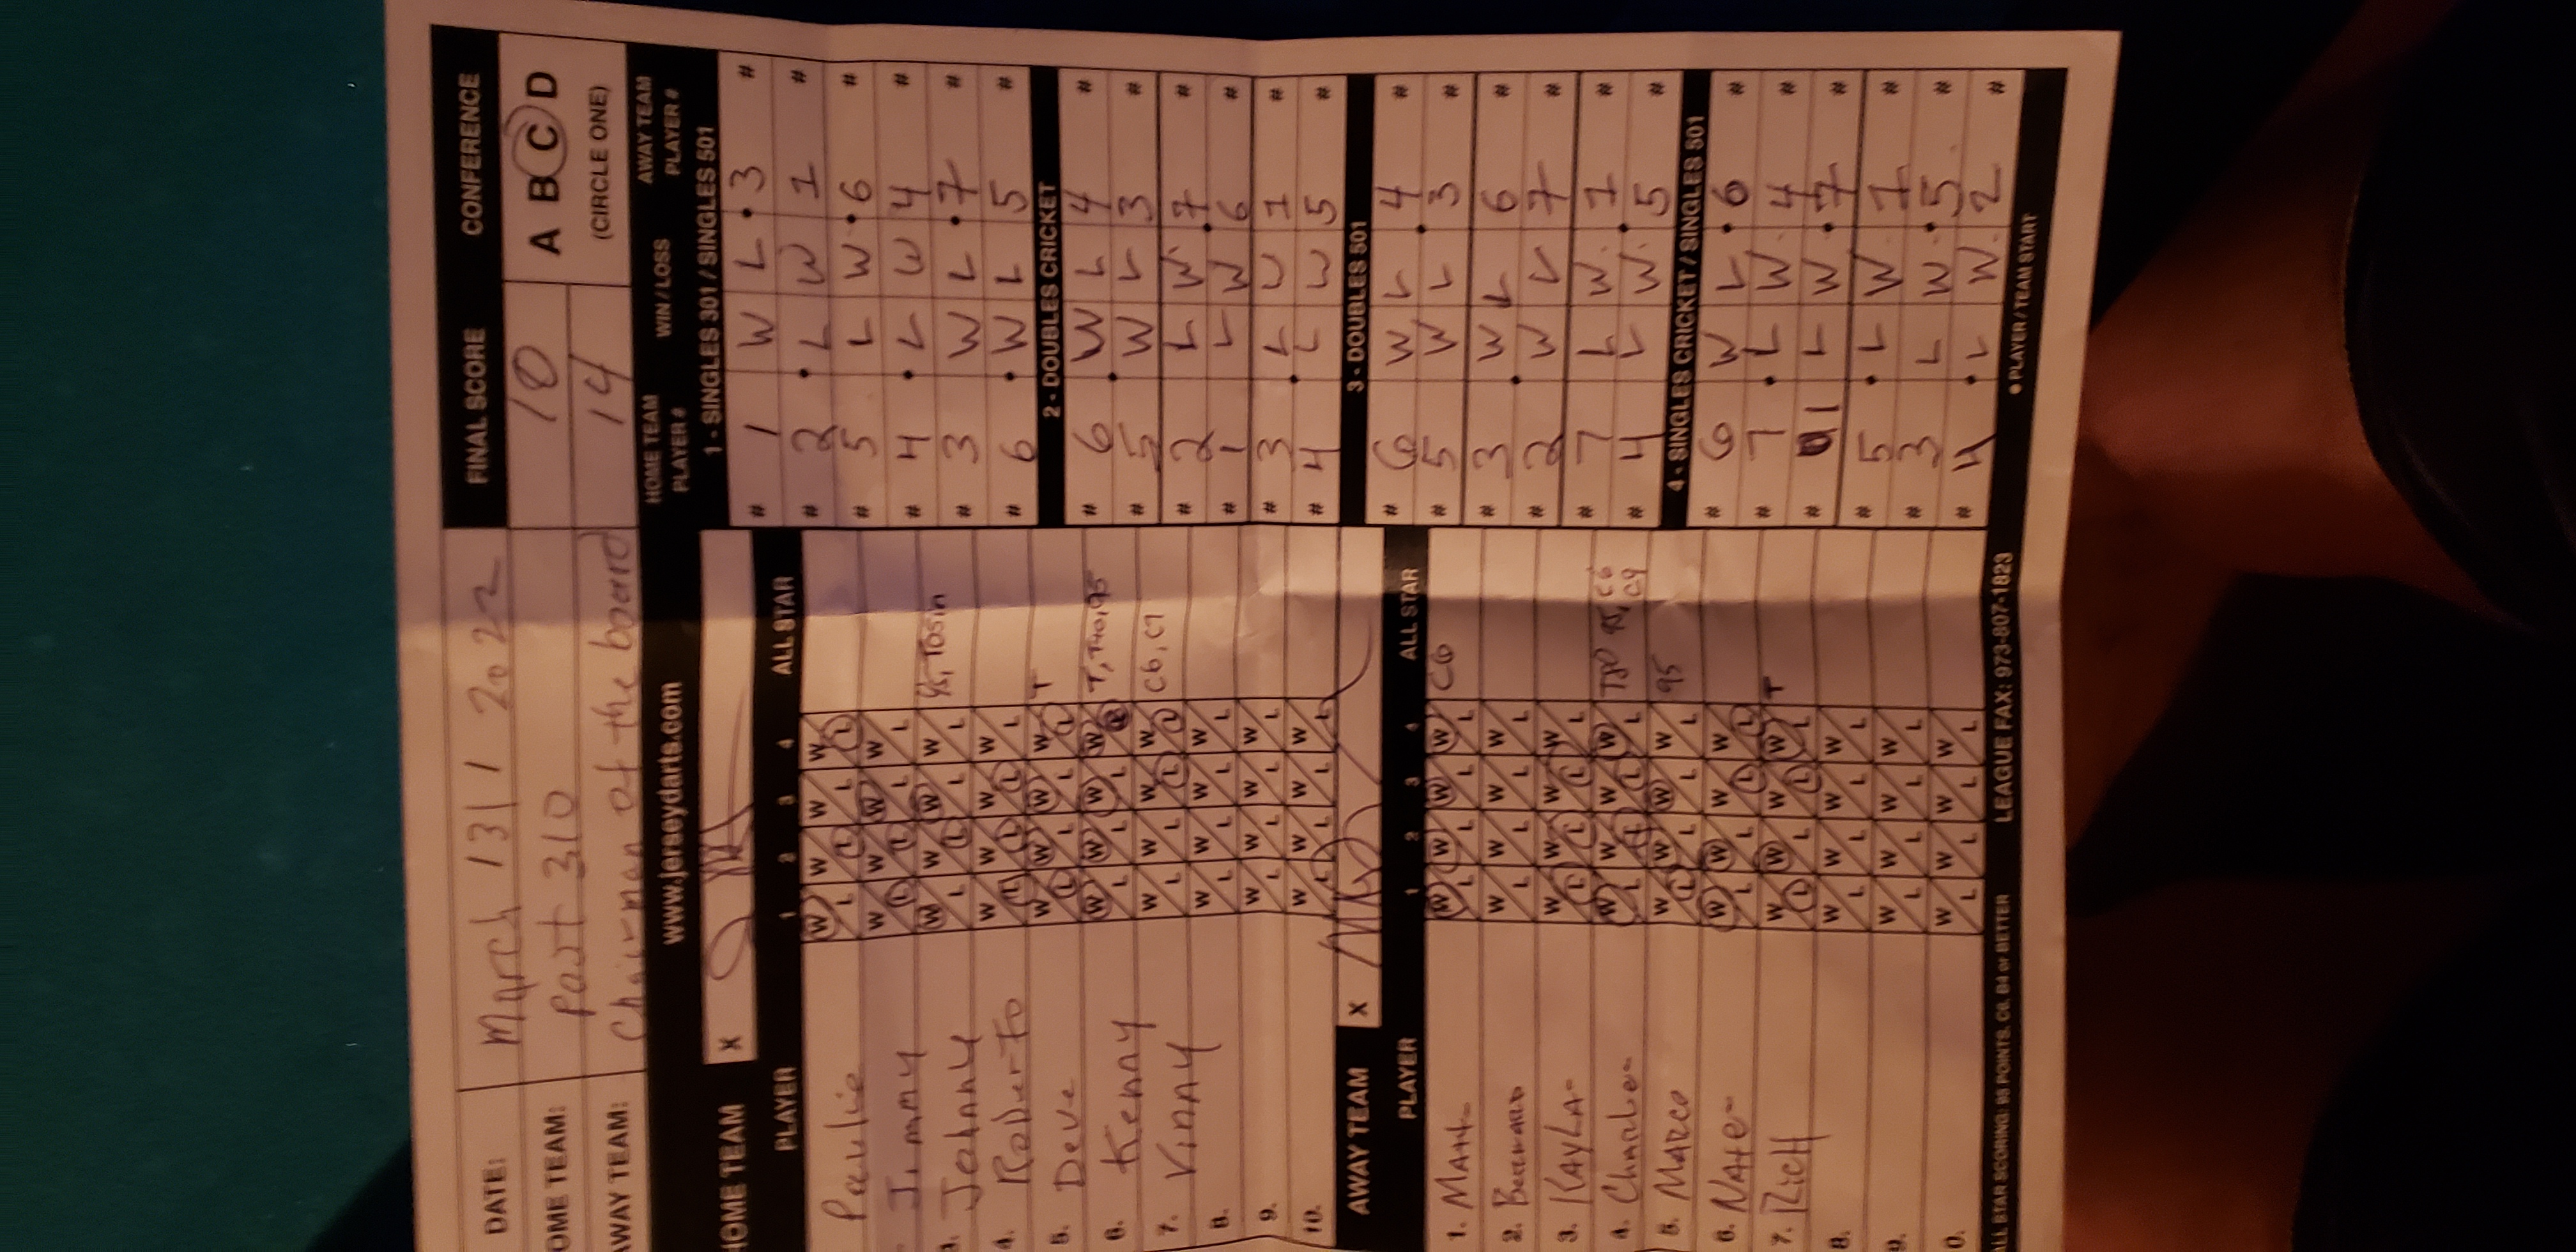 DATE: March 1311 2022
OME TEAM: Part 310
AWAY TEAM: Chairman of the board
FINAL SCORE CONFERENCE
10 A B C D
14 (CIRCLE ONE)
www.jerseydarts.com
HOME TEAM X
PLAYER 1 2 3 4 ALL STAR
Paulie W L W L W L W L
Jimmy W L W L W L W L
3. Johnny W L W L W L W L 95, TOSin
4. Roberto W L W L W L W L
5. Deve W L W L W L W L T
6. Kenny W L W L W L W L T, T40, 95
7. Vinny W L W L W L W L C6, C7
8. W L W L W L W L
9. W L W L W L W L
10. W L W L W L W L
AWAY TEAM X
PLAYER 1 2 3 4 ALL STAR
1. Matt W L W L W L W L C6
2. W L W L W L W L
3. KAYLA W L W L W L W L
4. Charles W L W L W L W L T80 95, C6 C9
5. MARCO W L W L W L W L 95
6. NATE W L W L W L W L
7. RICH W L W L W L W L T
8. W L W L W L W L
9. W L W L W L W L
0. W L W L W L W L
ALL STAR SCORING: 95 POINTS, C6, B4 or BETTER LEAGUE FAX: 973-807-1823
HOME TEAM PLAYER # WIN / LOSS AWAY TEAM PLAYER #
1 - SINGLES 301 / SINGLES 501
# 1 W L 3 #
# 2 L W 1 #
# 5 L W 6 #
# 4 L W 4 #
# 3 W L 7 #
# 6 W L 5 #
2 - DOUBLES CRICKET
# 6 W L 4 #
# 5 W L 3 #
# 2 L W 7 #
# 1 L W 6 #
# 3 L W 1 #
# 4 L W 5 #
3 - DOUBLES 501
# 6 W L 4 #
# 5 W L 3 #
# 3 W L 6 #
# 2 W L 7 #
# 7 L W 1 #
# 4 L W 5 #
4 - SINGLES CRICKET / SINGLES 501
# 6 W L 6 #
# 7 L W 4 #
# 1 L W 7 #
# 5 L W 1 #
# 3 L W 5 #
# 4 L W 2 #
● PLAYER / TEAM START